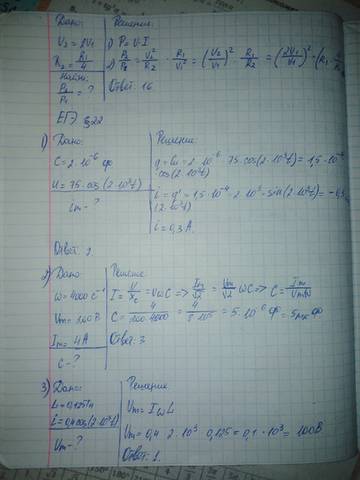 Дано:
V₂ = 2V₁
R₂ = R₁/4
Найти:
P₂/P₁ = ?
Решение:
1) P = V·I
2) P₂/P₁ = V₂²/R₂ · R₁/V₁² = (V₂/V₁)² · R₁/R₂ = (2V₁/V₁)² · (R₁
Ответ: 16
ЕГЭ 22
1) Дано:
C = 2·10⁻⁶ ф
U = 75·cos(2·10³t)
im - ?
Решение:
q = Cu = 2·10⁻⁶·75·cos(2·10³t) = 1,5·10⁻⁴
·cos(2·10³t)
i = q' = 1,5·10⁻⁴·2·10³·sin(2·10³t) = -0,3
(2·10³t)
i = 0,3 А.
Ответ: 1.
2) Дано:
ω = 4000 с⁻¹
Im = 4А
C - ?
Решение
I = V/Xc = VωC => Im/√2 = Vm/√2 ωC => C = Im/Vmω
C = 4/200·4000 = 4/8·10⁵ = 5·10⁻⁶ ф = 5мкф
Ответ: 3
3) Дано:
L = 0,125Гн
i = 0,4cos(2·10³t)
Vm - ?
Решение
Vm = IωL
Vm = 0,4·2·10³·0,125 = 0,1·10³ = 100В
Ответ: 1.